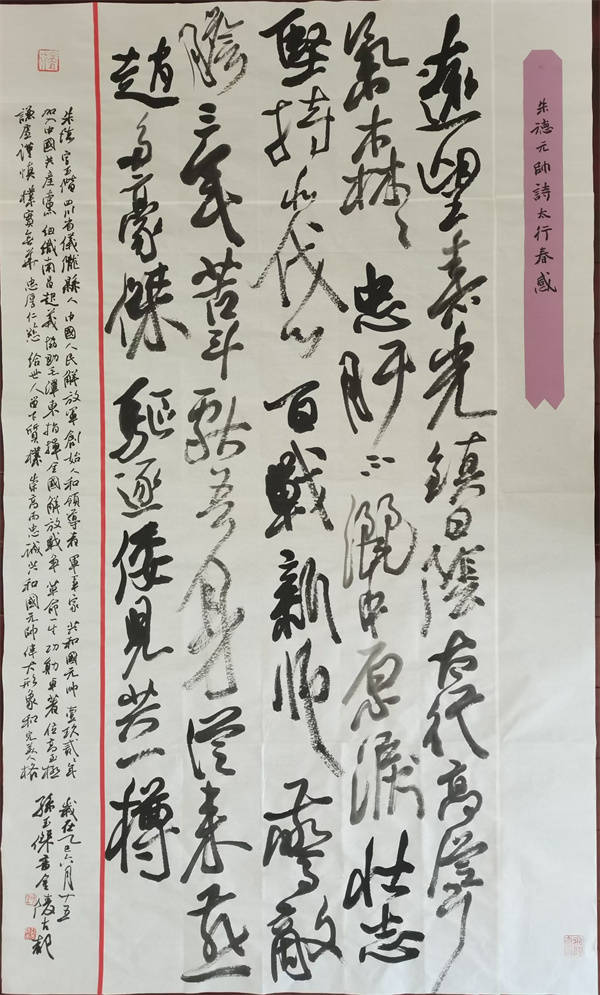 朱德元帥詩太行春感
遠望春光鎮日陰古代高聳
氣森々忠肝不灑中原淚壯志
堅持北伐心百戰新師驚敵
膽三年苦斗獻吾身從來燕
趙多豪傑驅逐倭兒共一樽
朱德字玉階四川省儀隴縣人中國人民解放軍創始人和領導者軍事家共和國元帥壹玖貳々年
加入中國共產黨組織南昌起義協助毛澤東指揮全國解放戰爭革命一生功勳卓著位高至極
謙虛謹慎樸實無華忠厚仁慈給世人留下質樸崇高而忠誠共和國元帥偉大形象和完美人格
歲在乙巳六月十五
孫玉傑書金陵古都